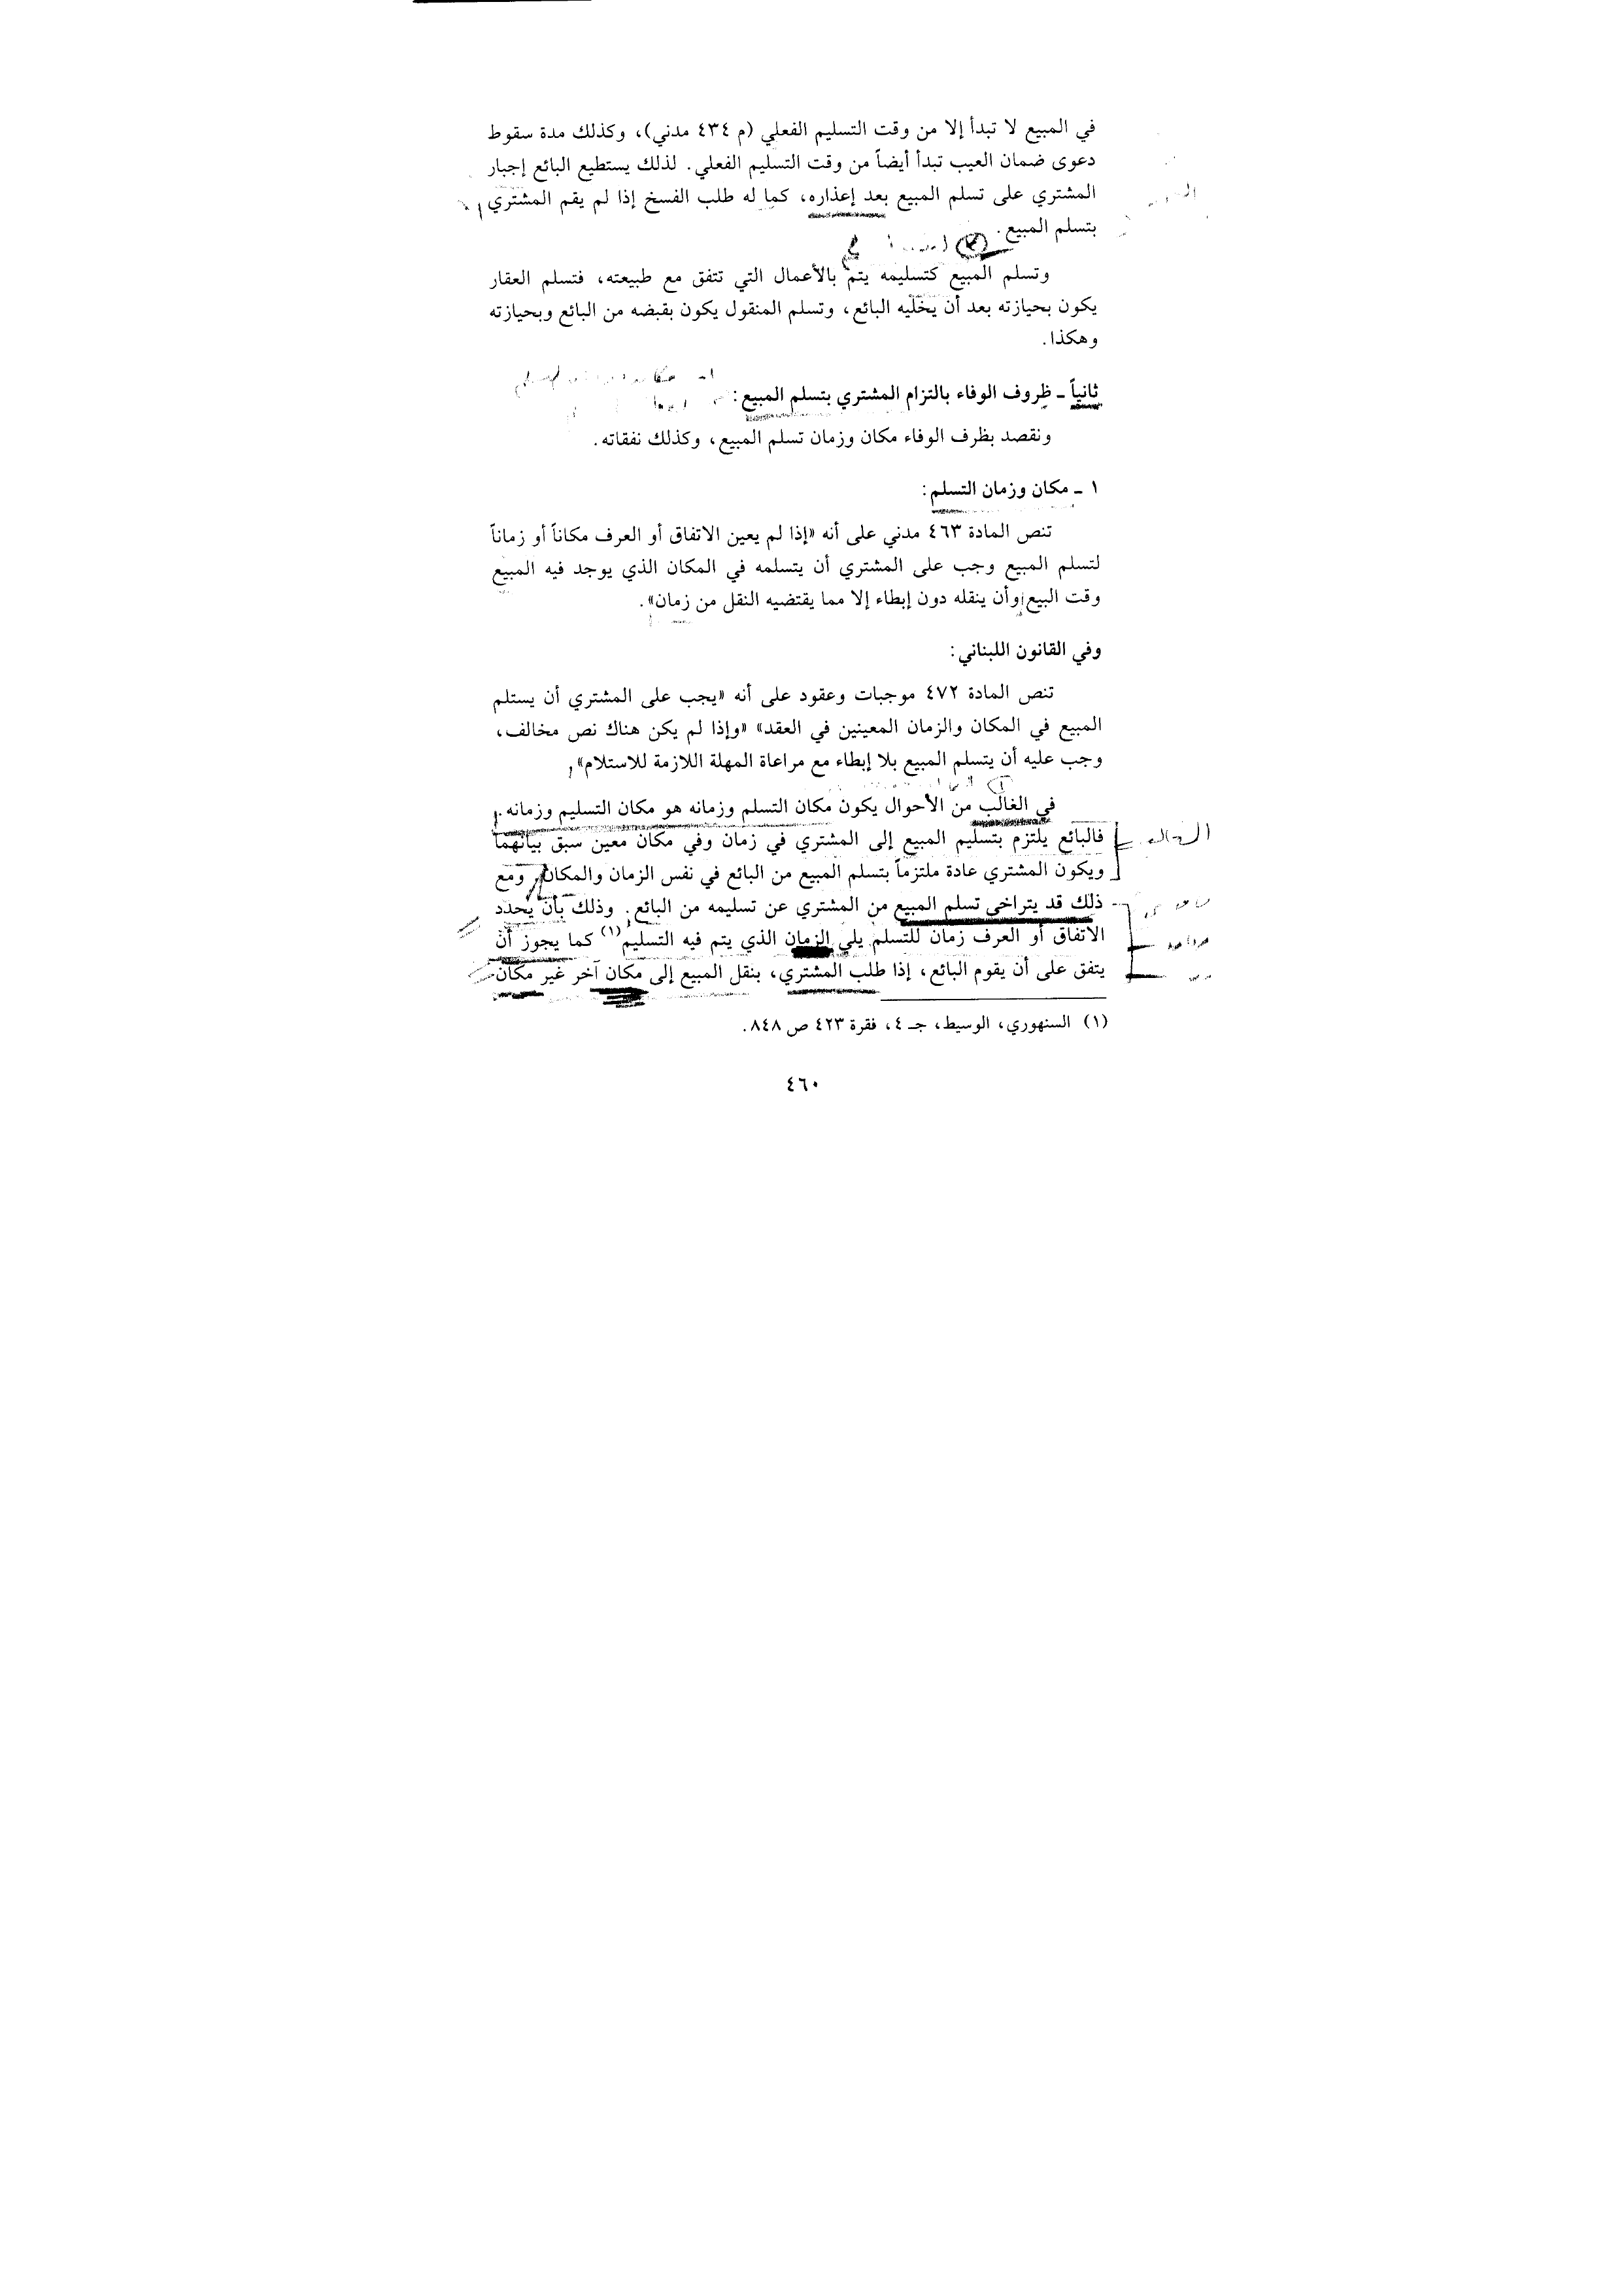 في المبيع لا تبدأ إلا من وقت التسليم الفعلي (م ٤٣٤ مدني)، وكذلك مدة سقوط
دعوى ضمان العيب تبدأ أيضاً من وقت التسليم الفعلي. لذلك يستطيع البائع إجبار
المشتري على تسلم المبيع بعد إعذاره، كما له طلب الفسخ إذا لم يقم المشتري
بتسلم المبيع.
وتسلم المبيع كتسليمه يتم بالأعمال التي تتفق مع طبيعته، فتسلم العقار
يكون بحيازته بعد أن يخليه البائع، وتسلم المنقول يكون بقبضه من البائع وبحيازته
وهكذا.
ثانياً ـ ظروف الوفاء بالتزام المشتري بتسلم المبيع:
ونقصد بظرف الوفاء مكان وزمان تسلم المبيع، وكذلك نفقاته.
١ ـ مكان وزمان التسلم:
تنص المادة ٤٦٣ مدني على أنه «إذا لم يعين الاتفاق أو العرف مكاناً أو زماناً
لتسلم المبيع وجب على المشتري أن يتسلمه في المكان الذي يوجد فيه المبيع
وقت البيع وأن ينقله دون إبطاء إلا مما يقتضيه النقل من زمان».
وفي القانون اللبناني:
تنص المادة ٤٧٢ موجبات وعقود على أنه «يجب على المشتري أن يستلم
المبيع في المكان والزمان المعينين في العقد» «وإذا لم يكن هناك نص مخالف،
وجب عليه أن يتسلم المبيع بلا إبطاء مع مراعاة المهلة اللازمة للاستلام»
في الغالب من الأحوال يكون مكان التسلم وزمانه هو مكان التسليم وزمانه.
فالبائع يلتزم بتسليم المبيع إلى المشتري في زمان وفي مكان معين سبق بيانهما
ويكون المشتري عادة ملتزماً بتسلم المبيع من البائع في نفس الزمان والمكان، ومع
ذلك قد يتراخى تسلم المبيع من المشتري عن تسليمه من البائع. وذلك بأن يحدد
الاتفاق أو العرف زمان للتسلم يلي الزمان الذي يتم فيه التسليم(١) كما يجوز أن
يتفق على أن يقوم البائع، إذا طلب المشتري، بنقل المبيع إلى مكان آخر غير مكان
(١) السنهوري، الوسيط، جـ ٤، فقرة ٤٢٣ ص ٨٤٨.
٤٦٠